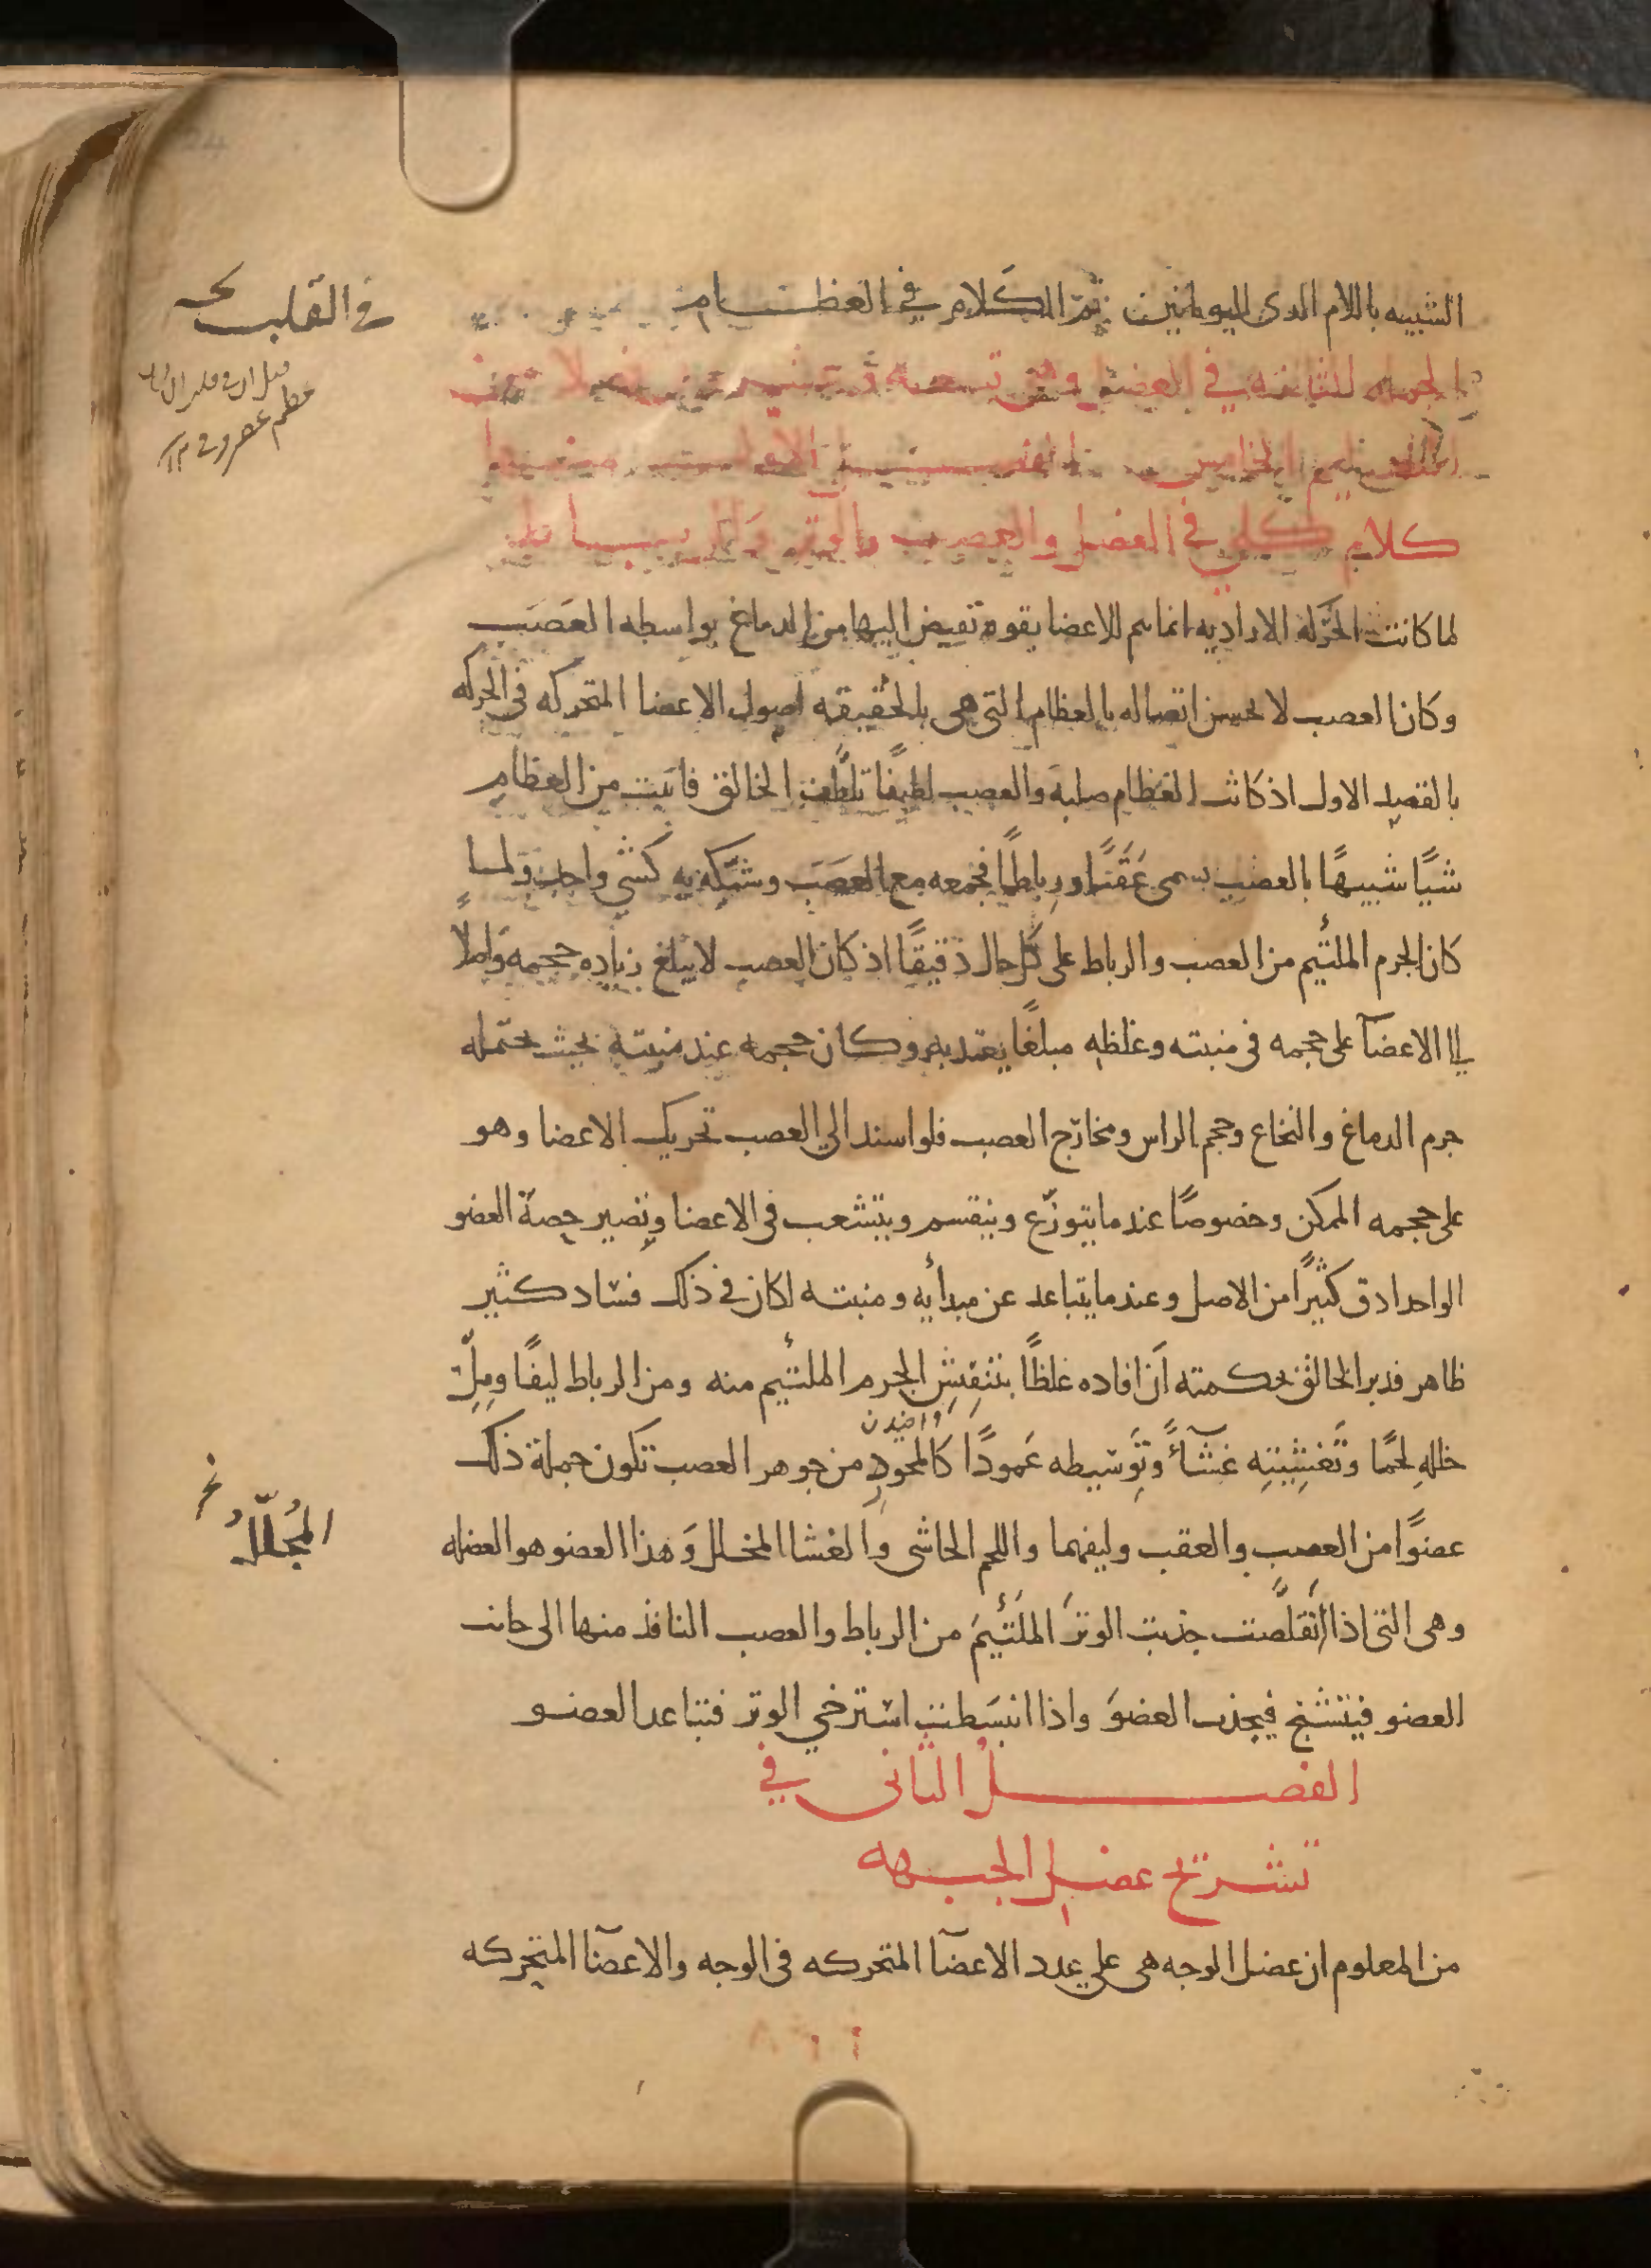 الشبيه باللام الدى لليونانيين تمّ الكَلام في العظـــام
الجمله الثانيه في العضل وهي تسعه وعشرون فصلا
كلام كلى في العضل والعصب والوتر والرباط
لما كانت الحَركة الاراديه انما تتم للاعضا بقوه تفيض اليها من الدماغ بواسطه العَصَب
وكان العصب لا يحسن اتصاله بالعظام التى هى بالحقيقه اصول الاعضا المتحركه في الحركه
بالقصد الاول اذ كانت العظام صلبة والعصب لطيفًا تلطَّف الخالق فانبت من العظام
شيًا شبيهًا بالعصب يسمى عَقَبًا ورِباطًا فجمعه مع العَصَب وشبّكه به كشى واحد ولما
كان الجرم الملتئيم من العصب والرباط على كل حال دقيقًا اذ كان العصب لا يبلغ زياده حجمه واصلًا
الى الاعضآ على حجمه فى منبته وغلظه مبلغًا يعتد به وكان حجمه عند منبته بحيث يحتمله
جرم الدماغ والنخاع وحجم الراس ومخارج العصب فلو اسند الي العصب تحريك الاعضا وهو
على حجمه الممكن وخصوصًا عند ما يتوزّع وينقسم ويتشعب فى الاعضا وتصير حصة العضو
الواحد ادق كثيرًا من الاصل وعند ما يتباعد عن مبدأيه ومنبته لكان في ذلك فساد كثير
ظاهر فدبر الخالق بحكمته أن افاده غلظًا بتنقيش الجرم الملتئيم منه ومن الرباط ليفًا ومِلْءِ
خللهِ لحمًا وتَغشِيَتِهِ غشآءً وتَوسيطه عَمودًا كَالمحورِ من جوهر العصب تكون جملة ذلك
عضوًا من العصب والعقب وليفهما واللحم الحاشى وَالغشا المخلل وَهذا العضو هو العضله
وهى التى اذا اتَقلصَّت جذبت الوترَ الملتَئيمَ من الرباط والعصب النافذ منها الى جانب
العضو فيتشنج فيجذب العضوَ واذا انبسَطت استرخي الوتر فتباعد العضــو
الفصـــــلُ الثانى في
تشريح عضل الجبهه
من المعلوم ان عضل الوجه هى على عدد الاعضآ المتحركه فى الوجه والاعضآ المتحركه
في القلب
المُجلّلُ